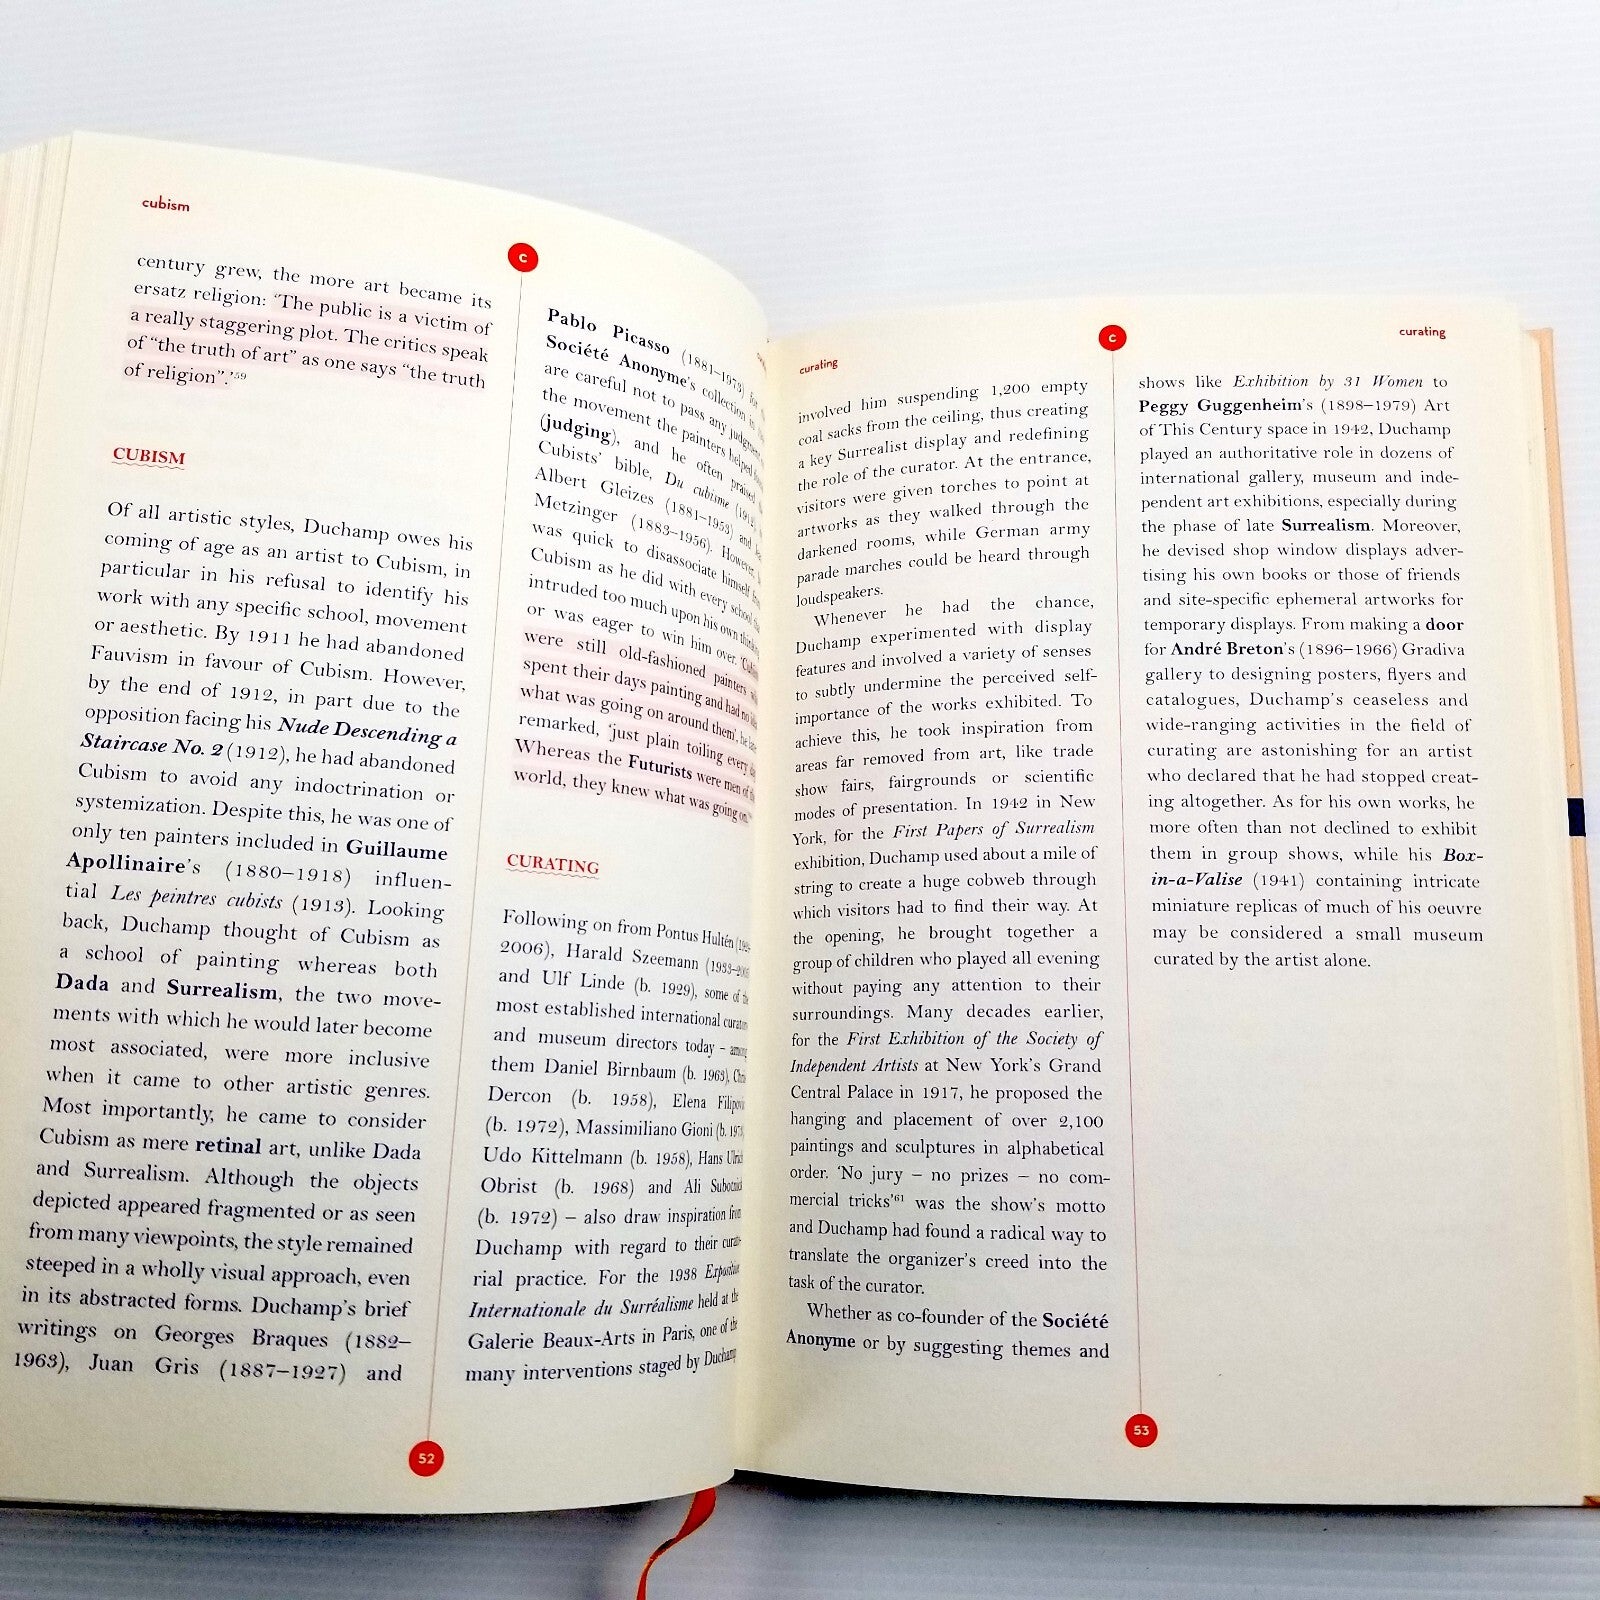 cubism
C
century grew, the more art became its
ersatz religion: 'The public is a victim of
a really staggering plot. The critics speak
of "the truth of art" as one says "the truth
of religion".'59
CUBISM
Of all artistic styles, Duchamp owes his
coming of age as an artist to Cubism, in
particular in his refusal to identify his
work with any specific school, movement
or aesthetic. By 1911 he had abandoned
Fauvism in favour of Cubism. However,
by the end of 1912, in part due to the
opposition facing his Nude Descending a
Staircase No. 2 (1912), he had abandoned
Cubism to avoid any indoctrination or
systemization. Despite this, he was one of
only ten painters included in Guillaume
Apollinaire's (1880–1918) influen-
tial Les peintres cubists (1913). Looking
back, Duchamp thought of Cubism as
a school of painting whereas both
Dada and Surrealism, the two move-
ments with which he would later become
most associated, were more inclusive
when it came to other artistic genres.
Most importantly, he came to consider
Cubism as mere retinal art, unlike Dada
and Surrealism. Although the objects
depicted appeared fragmented or as seen
from many viewpoints, the style remained
steeped in a wholly visual approach, even
in its abstracted forms. Duchamp's brief
writings on Georges Braques (1882–
1963), Juan Gris (1887–1927) and
Pablo Picasso (1881–1973) for
Société Anonyme's collection
are careful not to pass any judgment
the movement the painters helped
(judging), and he often praised
Cubists' bible, Du cubisme (1912)
Albert Gleizes (1881–1953) and
Metzinger (1883–1956). However,
was quick to disassociate himself
Cubism as he did with every school
intruded too much upon his own thinking
or was eager to win him over.
were still old-fashioned painters
spent their days painting and had no idea
what was going on around them', he
remarked, 'just plain toiling every day
Whereas the Futurists were men of
world, they knew what was going on.
CURATING
Following on from Pontus Hultén
2006), Harald Szeemann
and Ulf Linde (b. 1929), some of
most established international
and museum directors today –
them Daniel Birnbaum (b. 1963),
Dercon (b. 1958), Elena
(b. 1972), Massimiliano Gioni
Udo Kittelmann (b. 1958), Hans
Obrist (b. 1968) and Ali
(b. 1972) – also draw inspiration from
Duchamp with regard to their
rial practice. For the 1938
Internationale du Surréalisme held at the
Galerie Beaux-Arts in Paris, one of the
many interventions staged by Duchamp
52
curating
C
curating
involved him suspending 1,200 empty
coal sacks from the ceiling, thus creating
a key Surrealist display and redefining
the role of the curator. At the entrance,
visitors were given torches to point at
artworks as they walked through the
darkened rooms, while German army
parade marches could be heard through
loudspeakers.
Whenever he had the chance,
Duchamp experimented with display
features and involved a variety of senses
to subtly undermine the perceived self-
importance of the works exhibited. To
achieve this, he took inspiration from
areas far removed from art, like trade
show fairs, fairgrounds or scientific
modes of presentation. In 1942 in New
York, for the First Papers of Surrealism
exhibition, Duchamp used about a mile of
string to create a huge cobweb through
which visitors had to find their way. At
the opening, he brought together a
group of children who played all evening
without paying any attention to their
surroundings. Many decades earlier,
for the First Exhibition of the Society of
Independent Artists at New York's Grand
Central Palace in 1917, he proposed the
hanging and placement of over 2,100
paintings and sculptures in alphabetical
order. 'No jury – no prizes – no com-
mercial tricks'61 was the show's motto
and Duchamp had found a radical way to
translate the organizer's creed into the
task of the curator.
Whether as co-founder of the Société
Anonyme or by suggesting themes and
shows like Exhibition by 31 Women to
Peggy Guggenheim's (1898–1979) Art
of This Century space in 1942, Duchamp
played an authoritative role in dozens of
international gallery, museum and inde-
pendent art exhibitions, especially during
the phase of late Surrealism. Moreover,
he devised shop window displays adver-
tising his own books or those of friends
and site-specific ephemeral artworks for
temporary displays. From making a door
for André Breton's (1896–1966) Gradiva
gallery to designing posters, flyers and
catalogues, Duchamp's ceaseless and
wide-ranging activities in the field of
curating are astonishing for an artist
who declared that he had stopped creat-
ing altogether. As for his own works, he
more often than not declined to exhibit
them in group shows, while his Box-
in-a-Valise (1941) containing intricate
miniature replicas of much of his oeuvre
may be considered a small museum
curated by the artist alone.
53